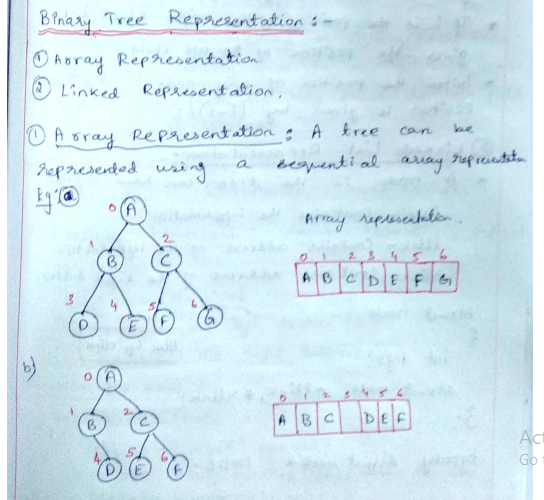 Binary Tree Representation :-
① Array Representation
② Linked Representation.
① Array Representation : A tree can be
represented using a sequential array representatn
Eg: ⓐ
Array representation.
0 A
1 2
B C
3 4 5 6
D E F G
0 1 2 3 4 5 6
A B C D E F G
b)
0 A
1 2
B C
4 5 6
D E F
0 1 2 3 4 5 6
A B C D E F
Act
Go t